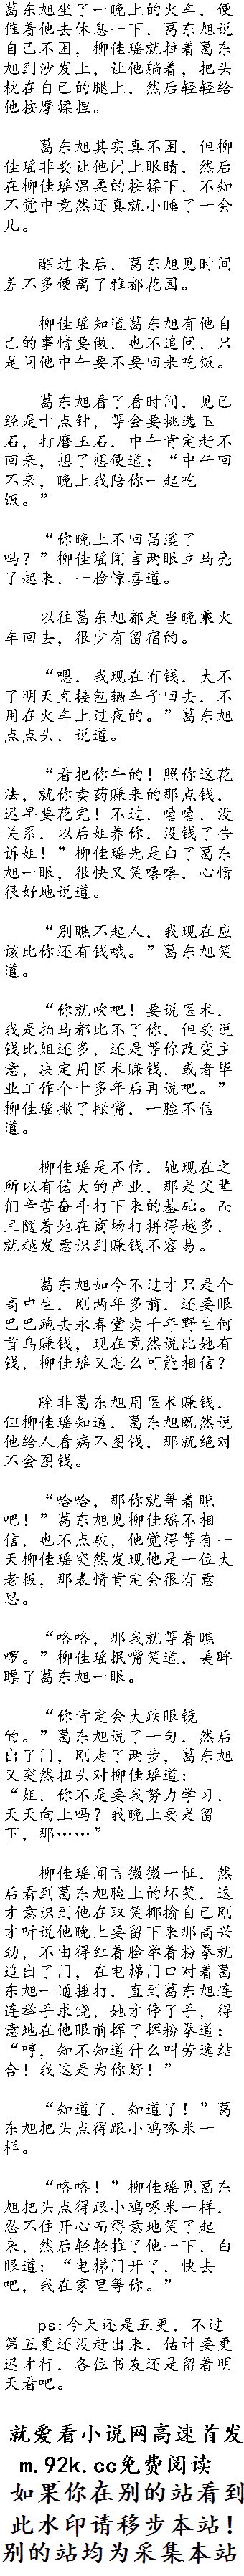 葛东旭坐了一晚上的火车，便
催着他去休息一下，葛东旭说
自己不困，柳佳瑶就拉着葛东
旭到沙发上，让他躺着，把头
枕在自己的腿上，然后轻轻给
他按摩揉捏。
葛东旭其实真不困，但柳
佳瑶非要让他闭上眼睛，然后
在柳佳瑶温柔的按揉下，不知
不觉中竟然还真就小睡了一会
儿。
醒过来后，葛东旭见时间
差不多便离了雅都花园。
柳佳瑶知道葛东旭有他自
己的事情要做，也不追问，只
是问他中午要不要回来吃饭。
葛东旭看了看时间，见已
经是十点钟，等会要挑选玉
石，打磨玉石，中午肯定赶不
回来，想了想便道：“中午回
不来，晚上我陪你一起吃
饭。”
“你晚上不回昌溪了
吗？”柳佳瑶闻言两眼立马亮
了起来，一脸惊喜道。
以往葛东旭都是当晚乘火
车回去，很少有留宿的。
“嗯，我现在有钱，大不
了明天直接包辆车子回去，不
用在火车上过夜的。”葛东旭
点点头，说道。
“看把你牛的！照你这花
法，就你卖药赚来的那点钱，
迟早要花完！不过，嘻嘻，没
关系，以后姐养你，没钱了告
诉姐！”柳佳瑶先是白了葛东
旭一眼，很快又笑嘻嘻，心情
很好地说道。
“别瞧不起人，我现在应
该比你还有钱哦。”葛东旭笑
道。
“你就吹吧！要说医术，
我是拍马都比不了你，但要说
钱比姐还多，还是等你改变主
意，决定用医术赚钱，或者毕
业工作个十多年后再说吧。”
柳佳瑶撇了撇嘴，一脸不信
道。
柳佳瑶是不信，她现在之
所以有偌大的产业，那是父辈
们辛苦奋斗打下来的基础。而
且随着她在商场打拼得越多，
就越发意识到赚钱不容易。
葛东旭如今不过才只是个
高中生，刚两年多前，还要眼
巴巴跑去永春堂卖千年野生何
首乌赚钱，现在竟然说比她有
钱，柳佳瑶又怎么可能相信？
除非葛东旭用医术赚钱，
但柳佳瑶知道，葛东旭既然说
他给人看病不图钱，那就绝对
不会图钱。
“哈哈，那你就等着瞧
吧！”葛东旭见柳佳瑶不相
信，也不点破，他觉得等有一
天柳佳瑶突然发现他是一位大
老板，那表情肯定会很有意
思。
“咯咯，那我就等着瞧
啰。”柳佳瑶抿嘴笑道，美眸
瞟了葛东旭一眼。
“你肯定会大跌眼镜
的。”葛东旭说了一句，然后
出了门，刚走了两步，葛东旭
又突然扭头对柳佳瑶道：
“姐，你不是要我努力学习，
天天向上吗？我晚上要是留
下，那……”
柳佳瑶闻言微微一怔，然
后看到葛东旭脸上的坏笑，这
才意识到他在取笑揶揄自己刚
才听说他晚上要留下来那高兴
劲，不由得红着脸举着粉拳就
追出了门，在电梯门口对着葛
东旭一通捶打，直到葛东旭连
连举手求饶，她才停了手，得
意地在他眼前挥了挥粉拳道：
“哼，知不知道什么叫劳逸结
合！我这是为你好！”
“知道了，知道了！”葛
东旭把头点得跟小鸡啄米一
样。
“咯咯！”柳佳瑶见葛东
旭把头点得跟小鸡啄米一样，
忍不住开心而得意地笑了起
来，然后轻轻推了他一下，白
眼道：“电梯门开了，快去
吧，我在家里等你。”
ps:今天还是五更，不过
第五更还没赶出来，估计要更
迟才行，各位书友还是留着明
天看吧。
就爱看小说网高速首发
m.92k.cc免费阅读
如果你在别的站看到
此水印请移步本站！
别的站均为采集本站